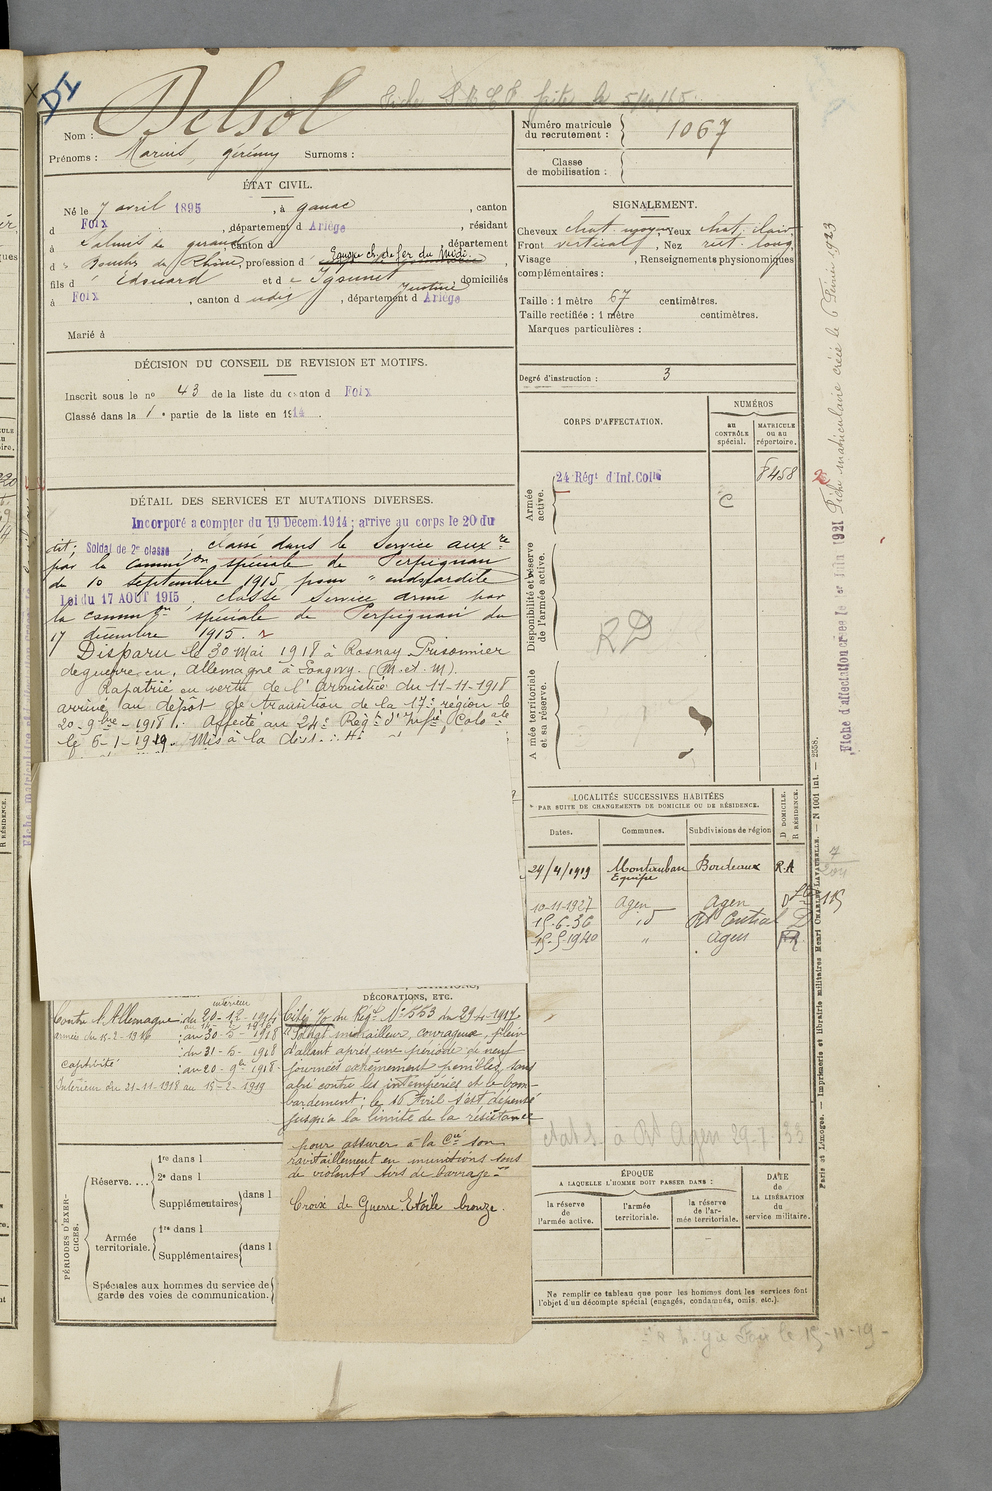 Delsol
Nom :
Prénoms : Marius, Jérémy Surnoms :
ÉTAT CIVIL.
Né le 7 avril 1895, à ganac, canton
d Foix, département d Ariège, résidant
à Salmis de giraud, canton d , département
d es Bouches du Rhône, profession d Equipe ch. de fer du Midi.
fils d Edouard et d e Igounet Justine, domiciliés
à Foix, canton d udit, département d Ariège
Marié à
DÉCISION DU CONSEIL DE REVISION ET MOTIFS.
Inscrit sous le no 43 de la liste du canton d Foix
Classé dans la 1e partie de la liste en 1914.
DÉTAIL DES SERVICES ET MUTATIONS DIVERSES.
Incorporé a compter du 19 Décem. 1914 ; arrive au corps le 20 du
dit, Soldat de 2e classe. classé dans le Service auxre
par la commion spéciale de Perpignan
du 10 septembre 1915 pour
Loi du 17 AOUT 1915. classé service armé par
la commion spéciale de Perpignan du
17 décembre 1915.
Disparu le 30 Mai 1918 à Rosnay Prisonnier
de guerre en Allemagne à Longwy. (M. et M).
Rapatrié en vertu de l'Armistice du 11-11-1918
arrivé au dépôt de transition de la 17e région le
20-9bre-1918. Affecté au 24e Régt d'Infie Colole
le 6-1-1919. Mis à la
Contre l'Allemagne : du 20-12-1914
intérieur
armées du 15-2-1916 : au 30-5-1918
captivité : du 31-5-1918
: au 20-9bre 1918
Intérieur du 21-11-1918 au 15-2-1919
DÉCORATIONS, ETC.
Cité o/ du Régt No 553 du 29-4-1917
"Sergt mitrailleur, courageux, plein
d'allant après une période de neuf
journées extrêmement pénibles, sans
abri contre les intempéries et le bom-
bardement ; le 16 Avril s'est dépensé
jusqu'à la limite de la résistance
pour assurer à la Cie son
ravitaillement en munitions sous
de violents tirs de barrage"
Croix de Guerre Etoile bronze.
PÉRIODES D'EXERCICES.
Réserve....
1re dans l
2e dans l
Supplémentaires dans l
Armée territoriale.
1re dans l
Supplémentaires dans l
Spéciales aux hommes du service de
garde des voies de communication.
Numéro matricule
du recrutement : 1067
Classe
de mobilisation :
SIGNALEMENT.
Cheveux chat. moyen Yeux chat. clair
Front vertical, Nez rect. long
Visage , Renseignements physionomiques
complémentaires :
Taille : 1 mètre 67 centimètres.
Taille rectifiée : 1 mètre centimètres.
Marques particulières :
Degré d'instruction : 3
CORPS D'AFFECTATION.
NUMÉROS
au
CONTRÔLE
spécial.
MATRICULE
ou au
répertoire.
Armée
active.
24 Régt d'Inf. Colle
C
8458
Disponibilité et réserve
de l'armée active.
RD
Armée territoriale
et sa réserve.
LOCALITÉS SUCCESSIVES HABITÉES
PAR SUITE DE CHANGEMENTS DE DOMICILE OU DE RÉSIDENCE.
Dates. Communes. Subdivisions de région D DOMICILE. R RÉSIDENCE.
24/4/1919 Montauban Bordeaux R.A
Equipe
10-11-1927 Agen Agen D
15-6-36 id Rt Central D
15-5-1940 " Agen
à Rt Agen 29-7-33
ÉPOQUE
A LAQUELLE L'HOMME DOIT PASSER DANS :
la réserve
de
l'armée active.
l'armée
territoriale.
la réserve
de l'ar-
mée territoriale.
DATE
de
LA LIBÉRATION
du
service militaire.
Ne remplir ce tableau que pour les hommes dont les services font
l'objet d'un décompte spécial (engagés, condamnés, omis, etc.).
Fiche matriculaire créée le 6 Février 1923
Fiche d'affectation créée le 1er Juin 1921
Paris et Limoges. — Imprimerie et librairie militaires Henri CHARLES-LAVAUZELLE. — N 1001 int. — 2558.